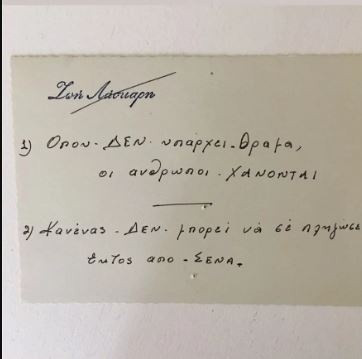 Ζωή Λάσκαρη
1) Οπου - ΔΕΝ - υπάρχει - Οραμα,
οι ανθρωποι - ΧΑΝΟΝΤΑΙ
2) Κανένας - ΔΕΝ - μπορεί νά σέ πληγώσε
εκτος απο - ΣΕΝΑ.